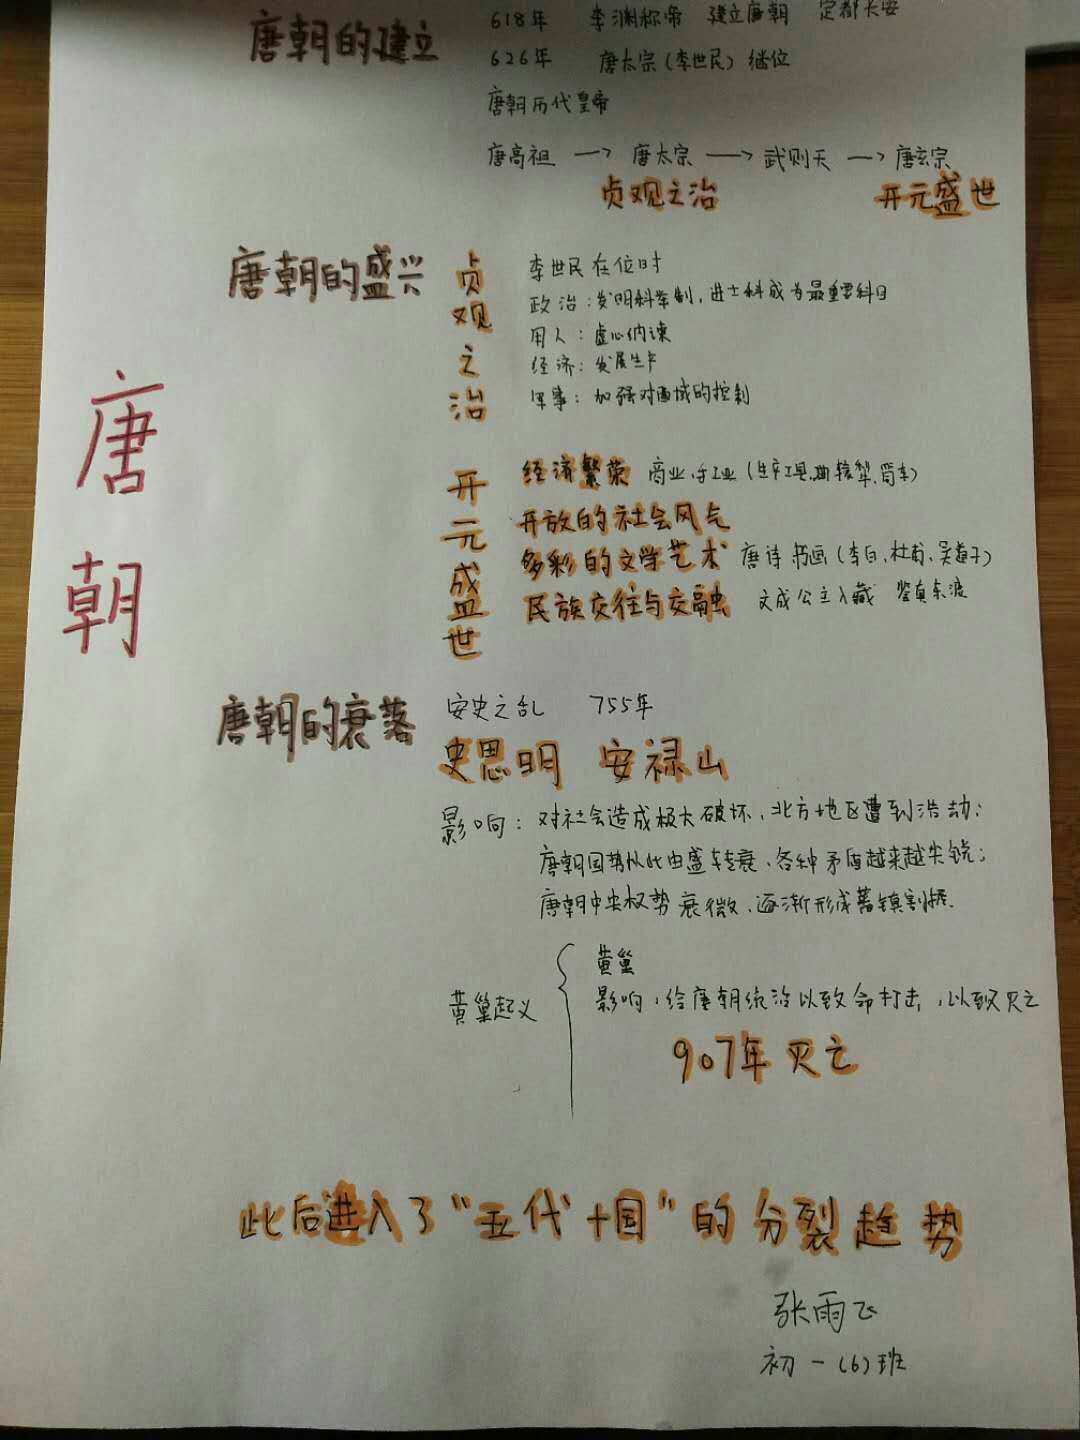 唐朝
唐朝的建立
618年 李渊称帝 建立唐朝 定都长安
626年 唐太宗(李世民)继位
唐朝历代皇帝
唐高祖 → 唐太宗 → 武则天 → 唐玄宗
贞观之治 开元盛世
唐朝的盛兴
贞观之治
李世民在位时
政治:发明科举制,进士科成为最重要科目
用人:虚心纳谏
经济:发展生产
军事:加强对西域的控制
开元盛世
经济繁荣 商业、手工业(生产工具,曲辕犁,筒车)
开放的社会风气
多彩的文学艺术 唐诗 书画(李白、杜甫、吴道子)
民族交往与交融 文成公主入藏 鉴真东渡
唐朝的衰落
安史之乱 755年
史思明 安禄山
影响:对社会造成极大破坏,北方地区遭到浩劫;
唐朝国势从此由盛转衰,各种矛盾越来越尖锐;
唐朝中央权势衰微,逐渐形成藩镇割据.
黄巢起义
黄巢
影响,给唐朝统治以致命打击,以致灭亡
907年灭亡
此后进入了“五代十国”的分裂趋势
张雨飞
初一(6)班